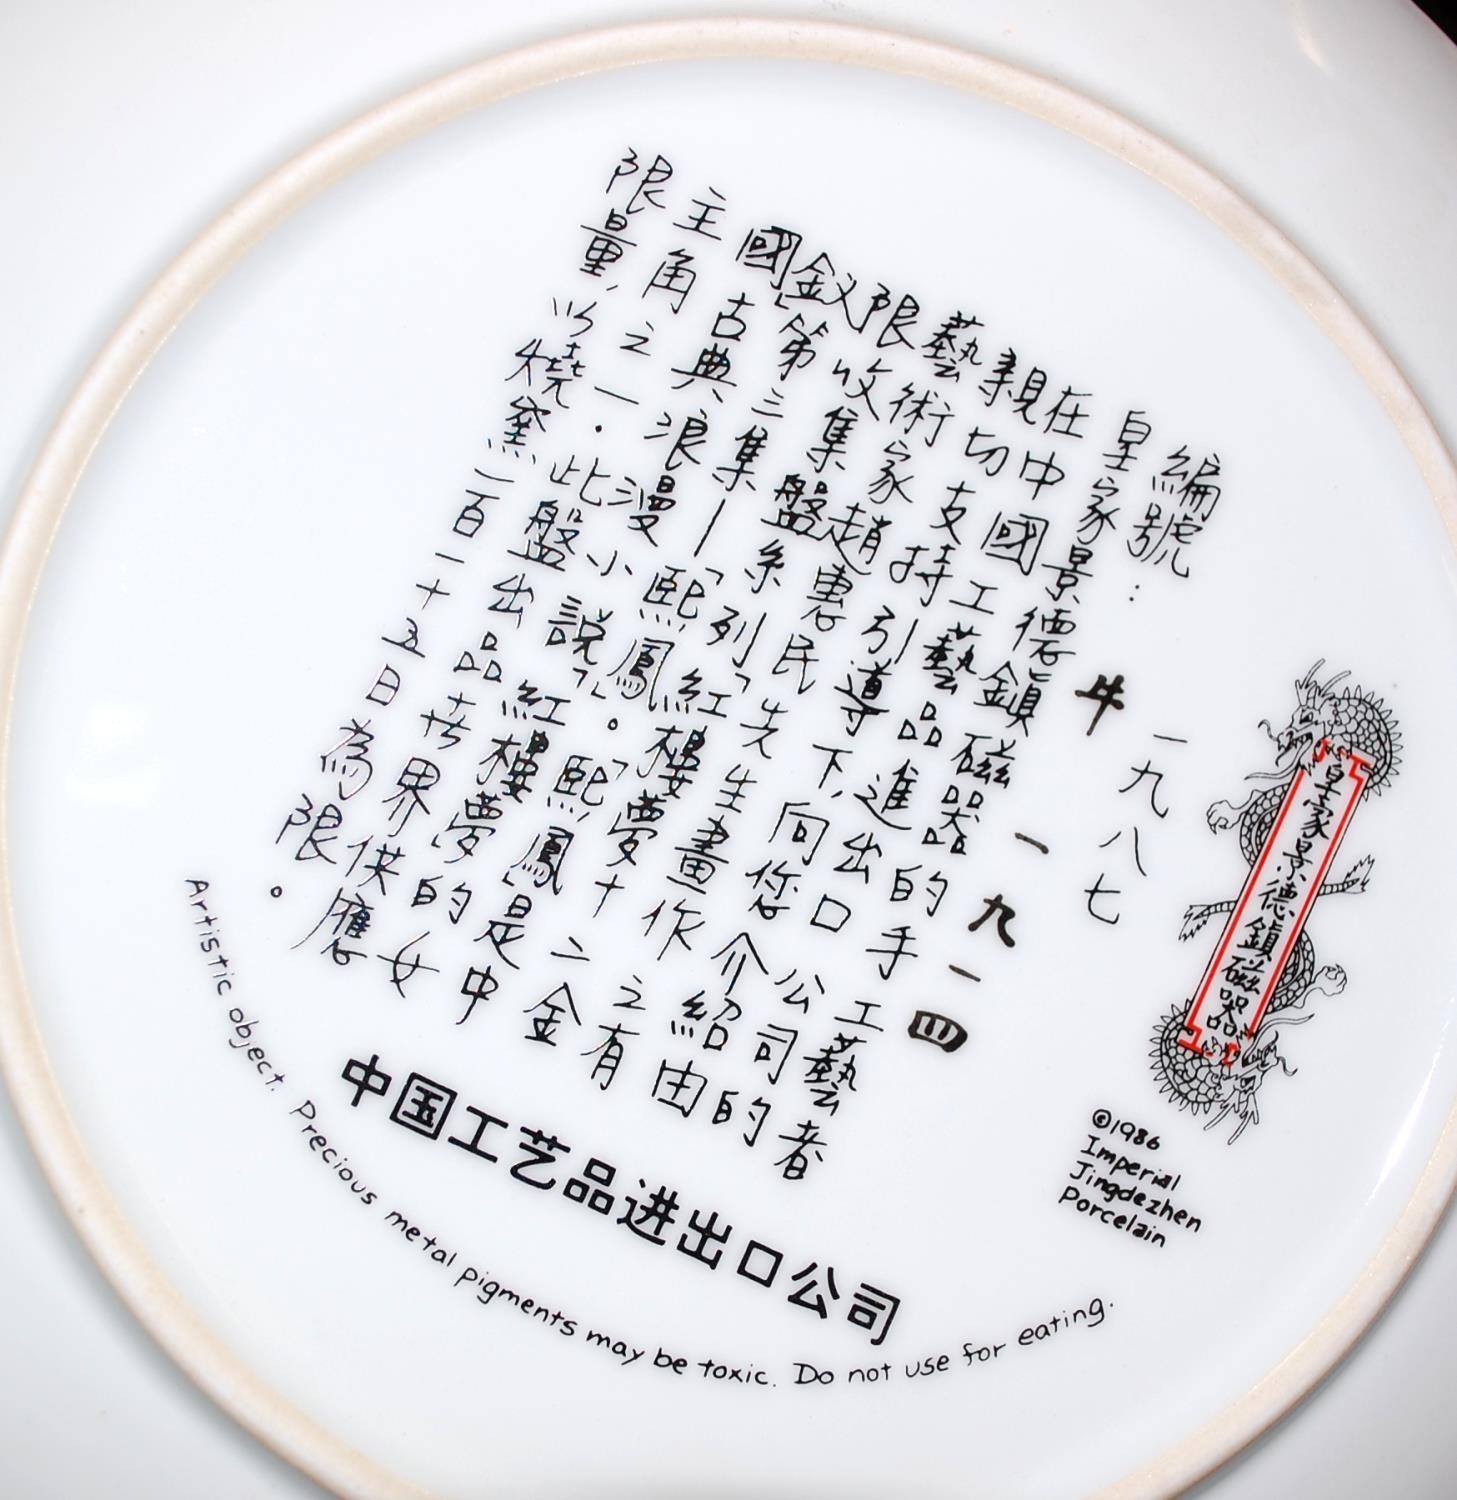 皇家景德鎮磁器
一九八七
編號： 牛 一九一四
皇家景德鎮磁器的手工藝者
在中國工藝品進出口公司的
親切支持引導下,向您介紹由
藝術家趙惠民先生畫作之有
限收集盤系列「紅樓夢十二金
釵」第三集—「熙鳳」。「熙鳳」是中
國古典浪漫小說「紅樓夢」的女
主角之一．此盤出品世界供應
限量,以燒窯一百一十五日為限。
中国工艺品进出口公司
©1986
Imperial
Jingdezhen
Porcelain
Artistic object. Precious metal pigments may be toxic. Do not use for eating.